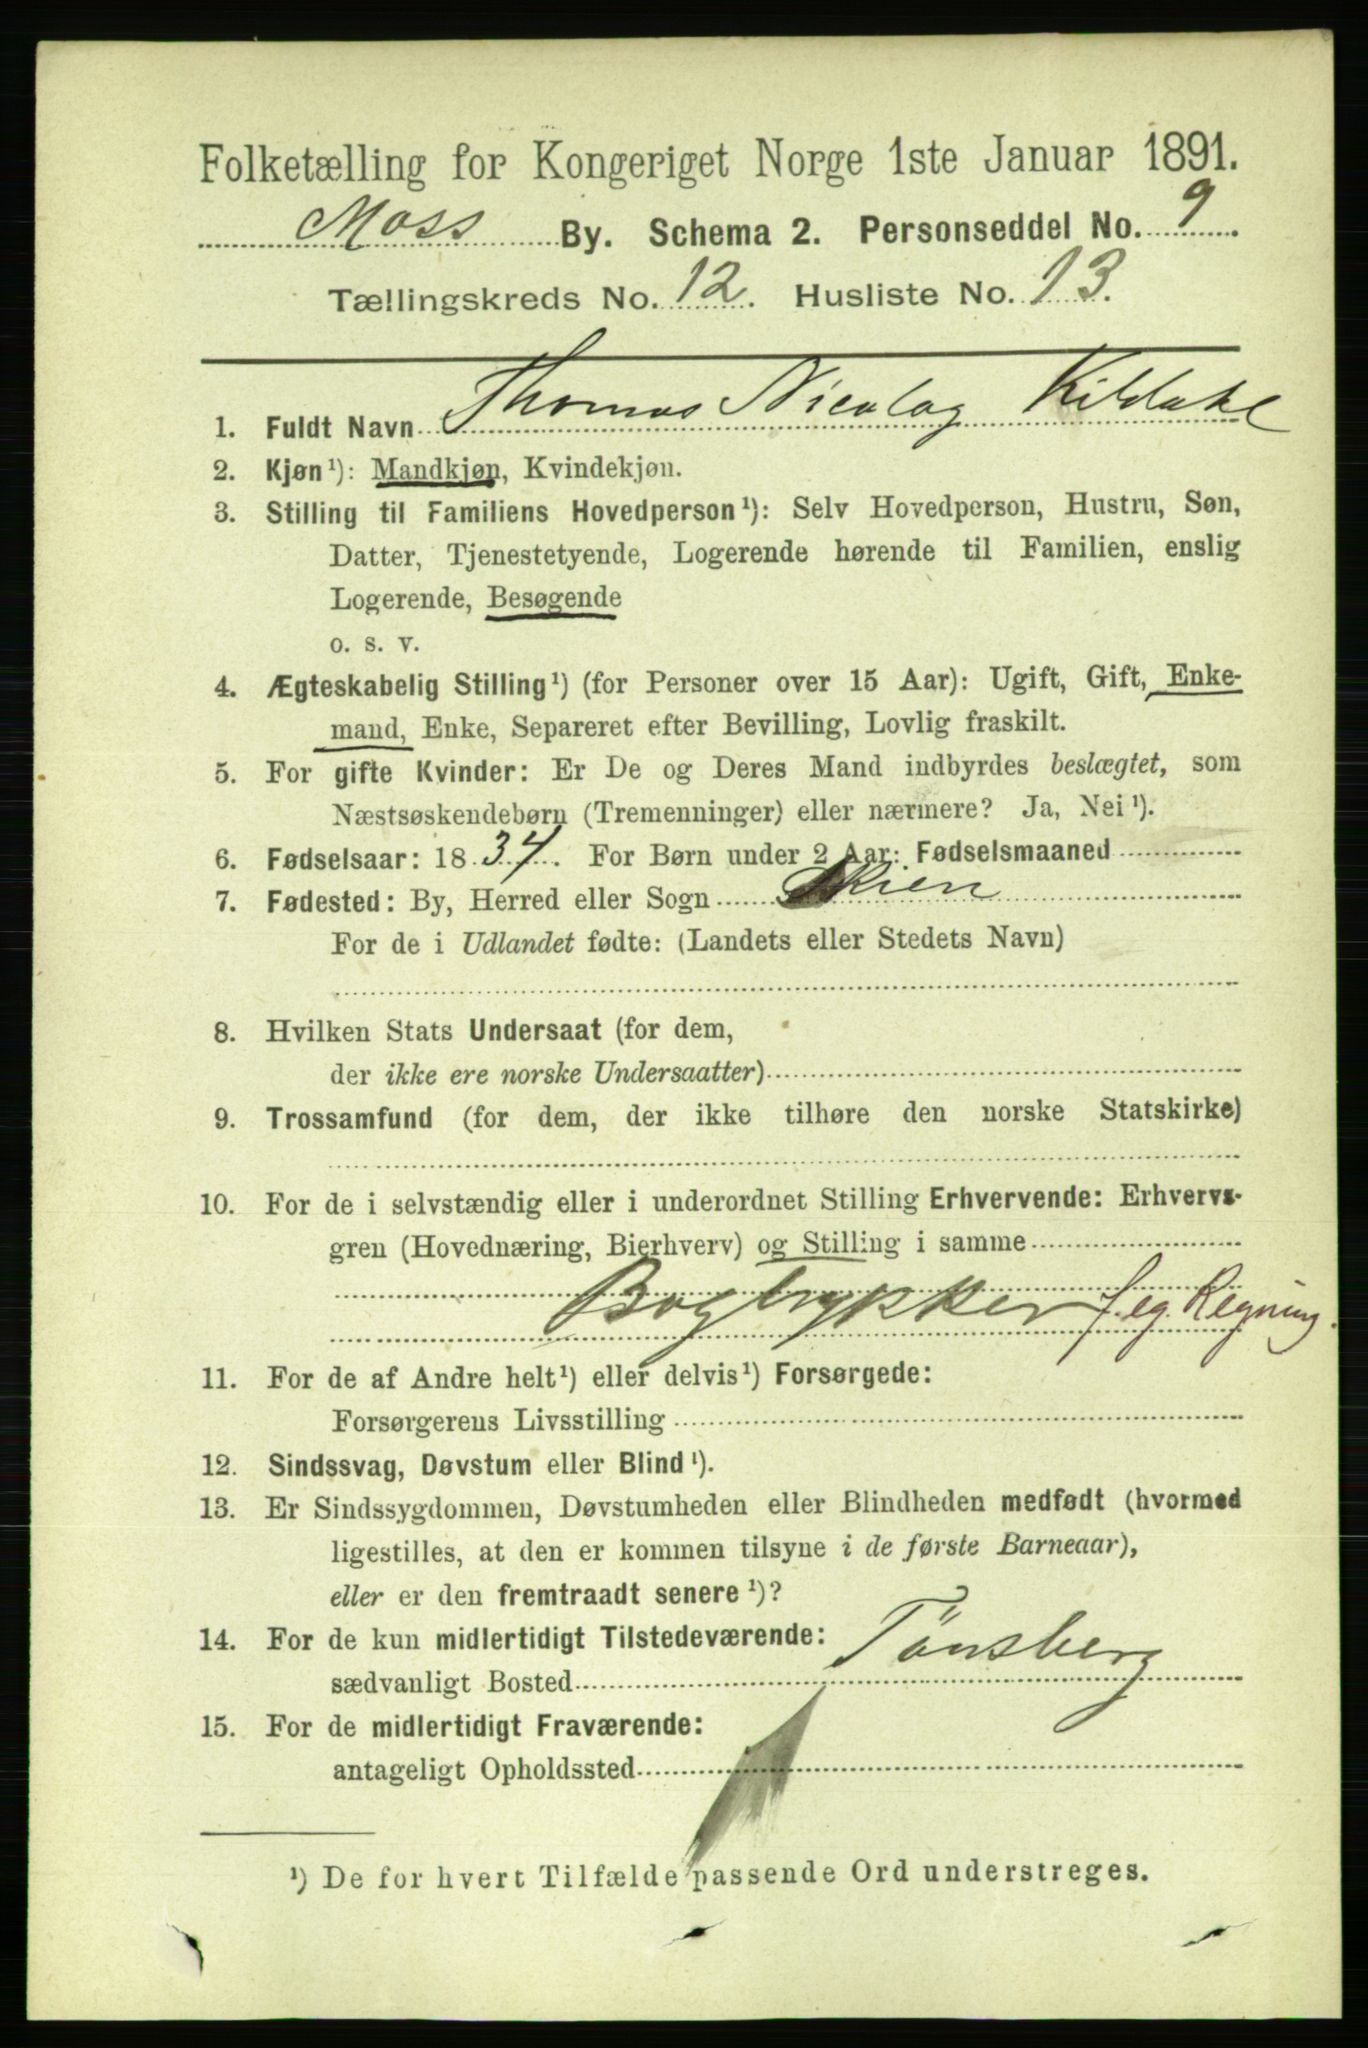 Folketælling for Kongeriget Norge 1ste Januar 1891.
Moss By. Schema 2. Personseddel No. 9
Tællingskreds No. 12. Husliste No. 13.
1. Fuldt Navn Thomas Nicolay Kildahl
2. Kjøn¹): Mandkjøn, Kvindekjøn.
3. Stilling til Familiens Hovedperson¹): Selv Hovedperson, Hustru, Søn,
Datter, Tjenestetyende, Logerende hørende til Familien, enslig
Logerende, Besøgende
o. s. v.
4. Ægteskabelig Stilling¹) (for Personer over 15 Aar): Ugift, Gift, Enke-
mand, Enke, Separeret efter Bevilling, Lovlig fraskilt.
5. For gifte Kvinder: Er De og Deres Mand indbyrdes beslægtet, som
Næstsøskendebørn (Tremenninger) eller nærmere? Ja, Nei¹).
6. Fødselsaar: 1834. For Børn under 2 Aar: Fødselsmaaned
7. Fødested: By, Herred eller Sogn Skien
For de i Udlandet fødte: (Landets eller Stedets Navn)
8. Hvilken Stats Undersaat (for dem,
der ikke ere norske Undersaatter)
9. Trossamfund (for dem, der ikke tilhøre den norske Statskirke)
10. For de i selvstændig eller i underordnet Stilling Erhvervende: Erhvervs-
gren (Hovednæring, Bierhverv) og Stilling i samme
Bogtrykker f. eg. Regning.
11. For de af Andre helt¹) eller delvis¹) Forsørgede:
Forsørgerens Livsstilling
12. Sindssvag, Døvstum eller Blind¹).
13. Er Sindssygdommen, Døvstumheden eller Blindheden medfødt (hvormed
ligestilles, at den er kommen tilsyne i de første Barneaar),
eller er den fremtraadt senere¹)?
14. For de kun midlertidigt Tilstedeværende:
sædvanligt Bosted Tönsberg
15. For de midlertidigt Fraværende:
antageligt Opholdssted
¹) De for hvert Tilfælde passende Ord understreges.